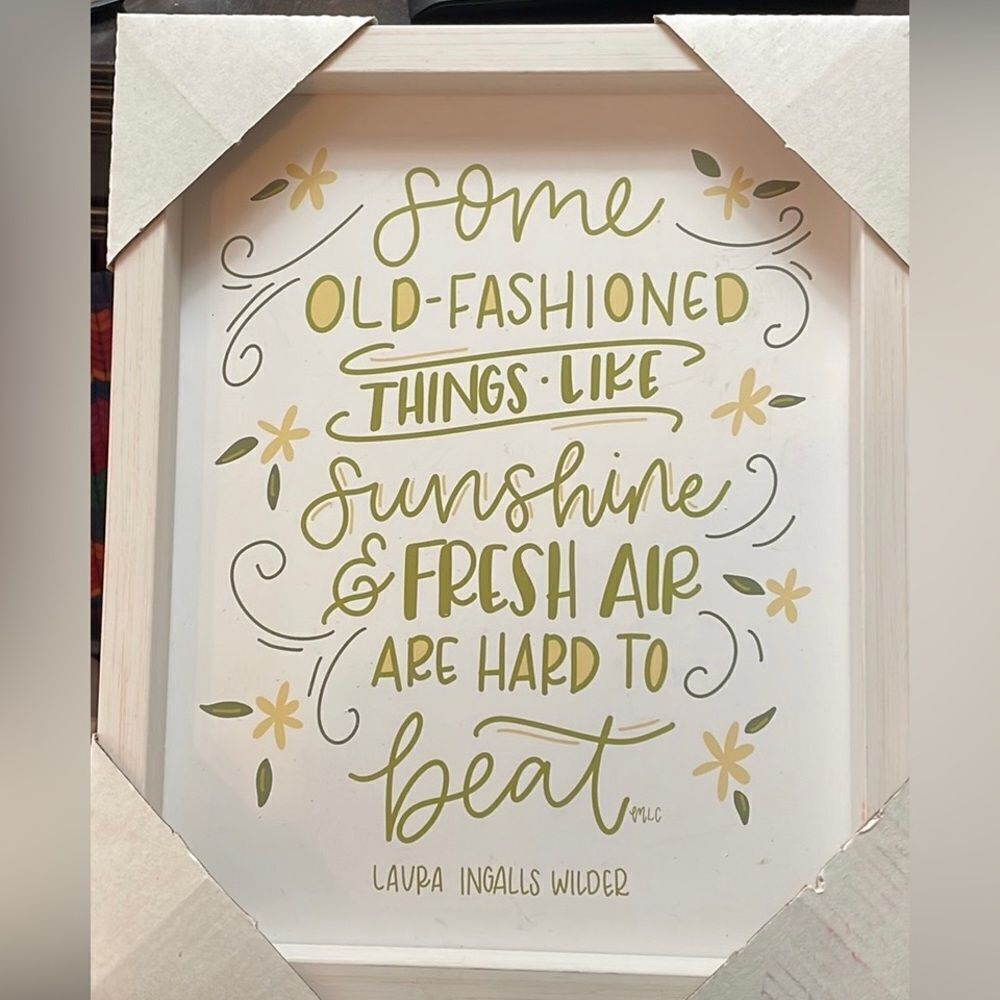 Some
OLD-FASHIONED
THINGS·LIKE
Sunshine
& FRESH AIR
ARE HARD TO
beat
MLC
LAURA INGALLS WILDER